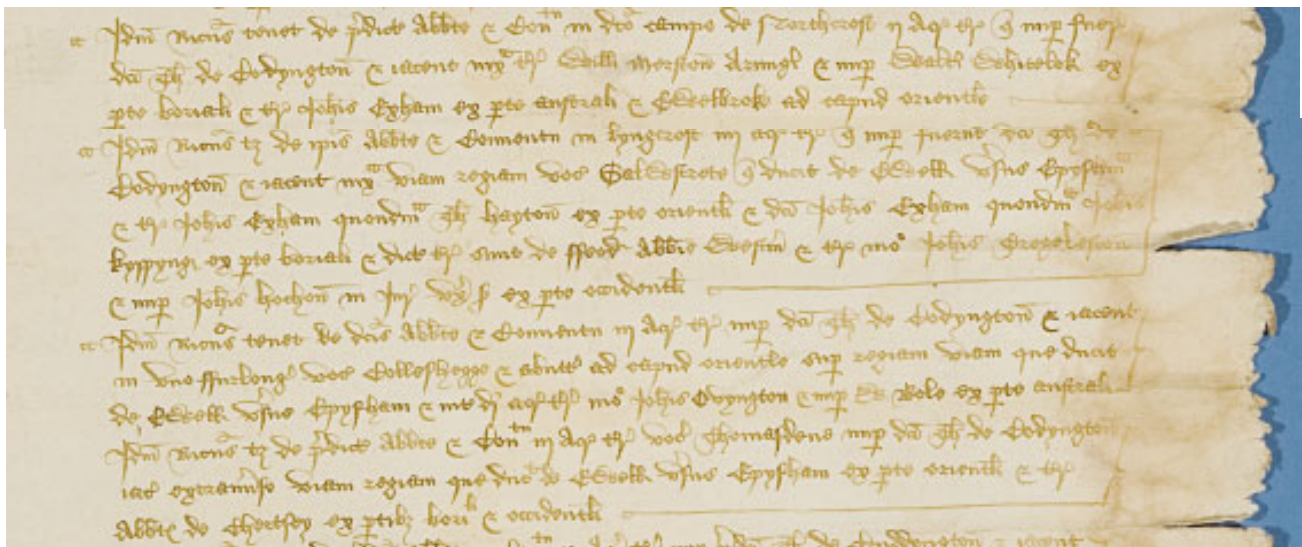 Idm Ricus tenet de pdict Abbte & Con in dco campo de Northcroft ij Acr tre q nup fuer
dci Th de Codyngton & iacent int tr Willi Merston Armigi & nup Walti Whitelok ex
pte boriali & tr Johis Exham ex pte australi & Ewelbroke ad capud orientle
Idm Ricus tz de ipis Abbte & Conuentu in lyngcroft iij acr tre q nup fuerut dci Th de
Codyngton & iacent int viam regiam voc Salwestrete q ducit de Ewell vsus Epysham
& tr Johis Exham quondm Th hayton ex pte orientli & dci Johis Exham quondm Johis
kyppyng ex pte boriali & dicte tr sunt de ffeod Abbie Westm & tr mo Johis
& nup Johis hochon in Jur ex pte occidentli
Idm Ricus tenet de dcis Abbte & Conuentu iij Acr tr nup dci Th de Codyngton & iacent
in vno ffurlong voc Colleshegge & abutt ad capud orientle sup regiam viam que ducit
de Ewell vsus Epysham & int acr tr mo Johis Ovyngton & nup Bole ex pte australi
Idm Ricus tz de pdict Abbte & Con iij Acr tr voc Thomasdene nup dci Th de Codyngton
iac extansuso viam regiam que duc de Ewell vsus Epysham ex pte orientli & tr
Abbtis de Chertsey ex ptibz bori & occidentli